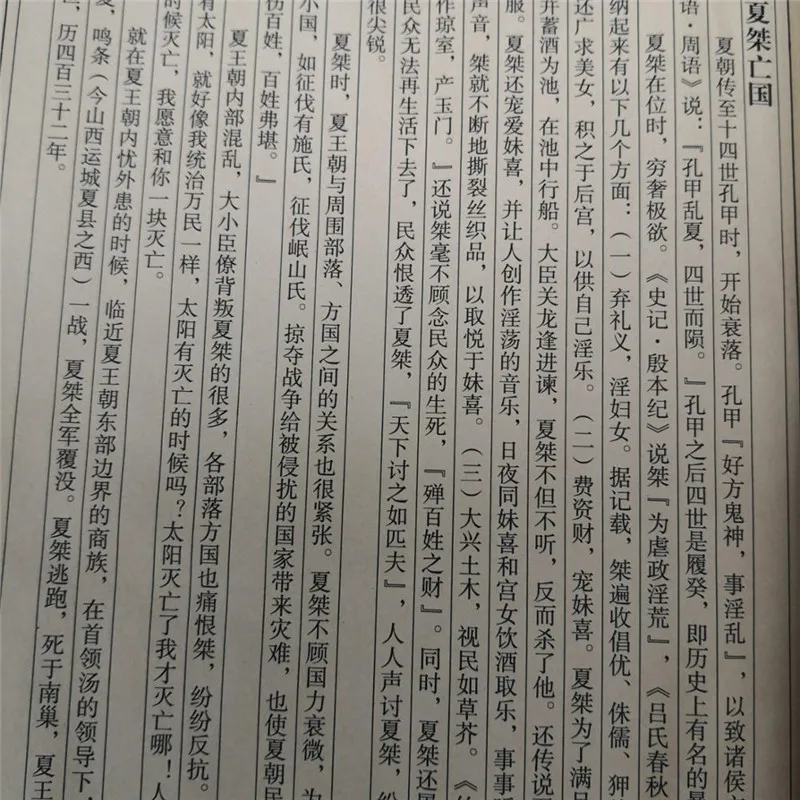 夏桀亡国
夏朝传至十四世孔甲时，开始衰落。孔甲『好方鬼神，事淫乱』，以致诸侯
语·周语》说：『孔甲乱夏，四世而陨。』孔甲之后四世是履癸，即历史上有名的暴
夏桀在位时，穷奢极欲。《史记·殷本纪》说桀『为虐政淫荒』，《吕氏春秋
纳起来有以下几个方面：（一）弃礼义，淫妇女。据记载，桀遍收倡优、侏儒、狎
还广求美女，积之于后宫，以供自己淫乐。（二）费资财，宠妹喜。夏桀为了满足
并蓄酒为池，在池中行船。大臣关龙逢进谏，夏桀不但不听，反而杀了他。还传说
服。夏桀还宠爱妹喜，并让人创作淫荡的音乐，日夜同妹喜和宫女饮酒取乐，事事
声音，桀就不断地撕裂丝织品，以取悦于妹喜。（三）大兴土木，视民如草芥。《
作琼室，产玉门。』还说桀毫不顾念民众的生死，『殚百姓之财』。同时，夏桀还
民众无法再生活下去了，民众恨透了夏桀，『天下讨之如匹夫』，人人声讨夏桀，纷
很尖锐。
夏桀时，夏王朝与周围部落、方国之间的关系也很紧张。夏桀不顾国力衰微，为
小国，如征伐有施氏，征伐岷山氏。掠夺战争给被侵扰的国家带来灾难，也使夏朝民
伤百姓，百姓弗堪。』
夏王朝内部混乱，大小臣僚背叛夏桀的很多，各部落方国也痛恨桀，纷纷反抗。
有太阳，就好像我统治万民一样，太阳有灭亡的时候吗？太阳灭亡了我才灭亡哪！人
时候灭亡，我愿意和你一块灭亡。
就在夏王朝内忧外患的时候，临近夏王朝东部边界的商族，在首领汤的领导下，
夏，鸣条（今山西运城夏县之西）一战，夏桀全军覆没。夏桀逃跑，死于南巢，夏王
，历四百三十二年。